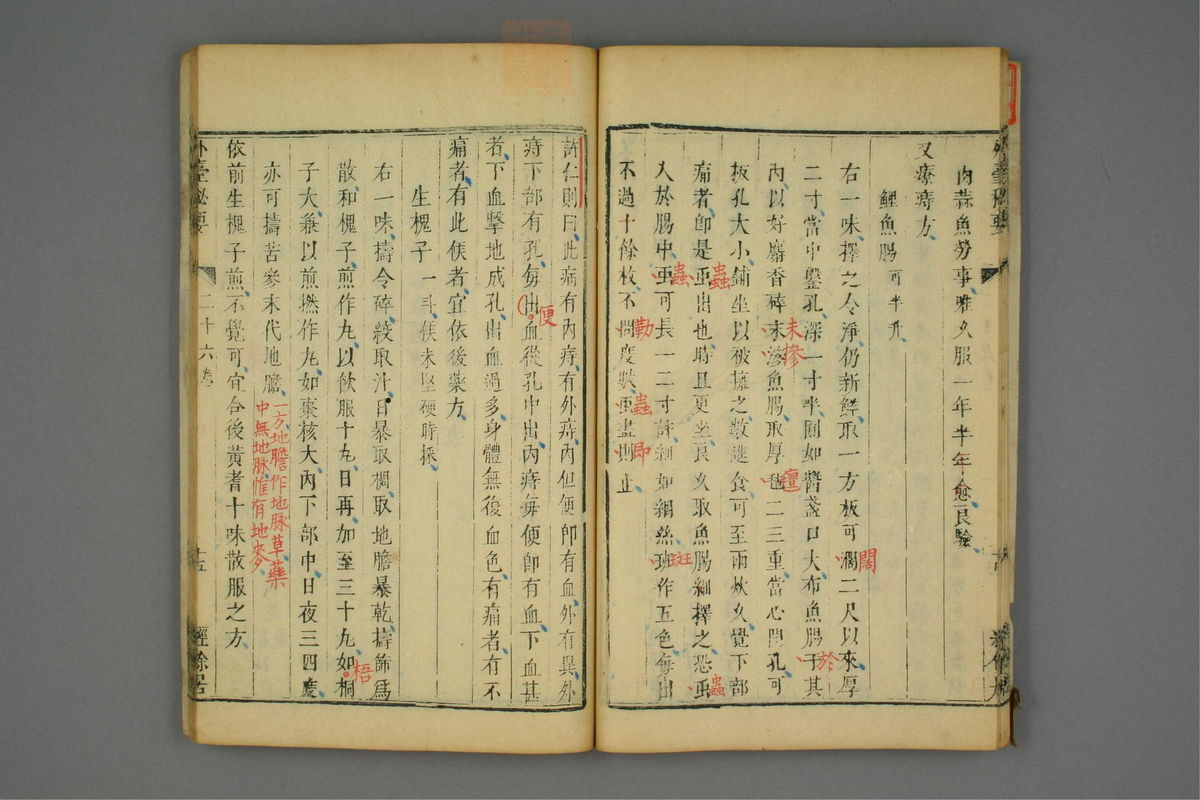 肉蒜魚勞事唯久服一年半年愈良驗
又療痔方
鯉魚腸可半升
右一味擇之令淨仍新鮮取一方板可濶二尺以來厚
闊
二寸當中鑿孔深一寸半圓如醬盞口大布魚腸于其
於
內以好麝香碎末滲魚腸取厚氊二三重當心開孔可
末摻
氊
板孔大小鋪坐以被擁之數進食可至兩炊久覺下部
痛者卽是䖝出也時且更坐良久取魚腸細擇之恐䖝
蟲
蟲
入於腸中䖝可長一二寸許細如網絲班作五色每出
蟲
斑
不過十餘枚不問度數䖝盡則止
勒
蟲
卽
許仁則曰此病有內痔有外痔內但便卽有血外有異外
痔下部有孔每出血從孔中出內痔每便卽有血下血甚
便
者下血擊地成孔出血過多身體無復血色有痛者有不
痛者有此候者宜依後藥方
生槐子一斗候未堅硬時採
右一味擣令碎絞取汁日暴取稠取地膽暴乾擣篩爲
散和槐子煎作丸以飲服十九日再加至三十丸如桐
梧
子大兼以煎撚作丸如棗核大內下部中日夜三四度
亦可擣苦參末代地膽
一方地膽作地脉草藥
中無地脉惟有地麥
依前生槐子煎不覺可宜合後黃耆十味散服之方
外臺秘要
二十六卷
經餘居